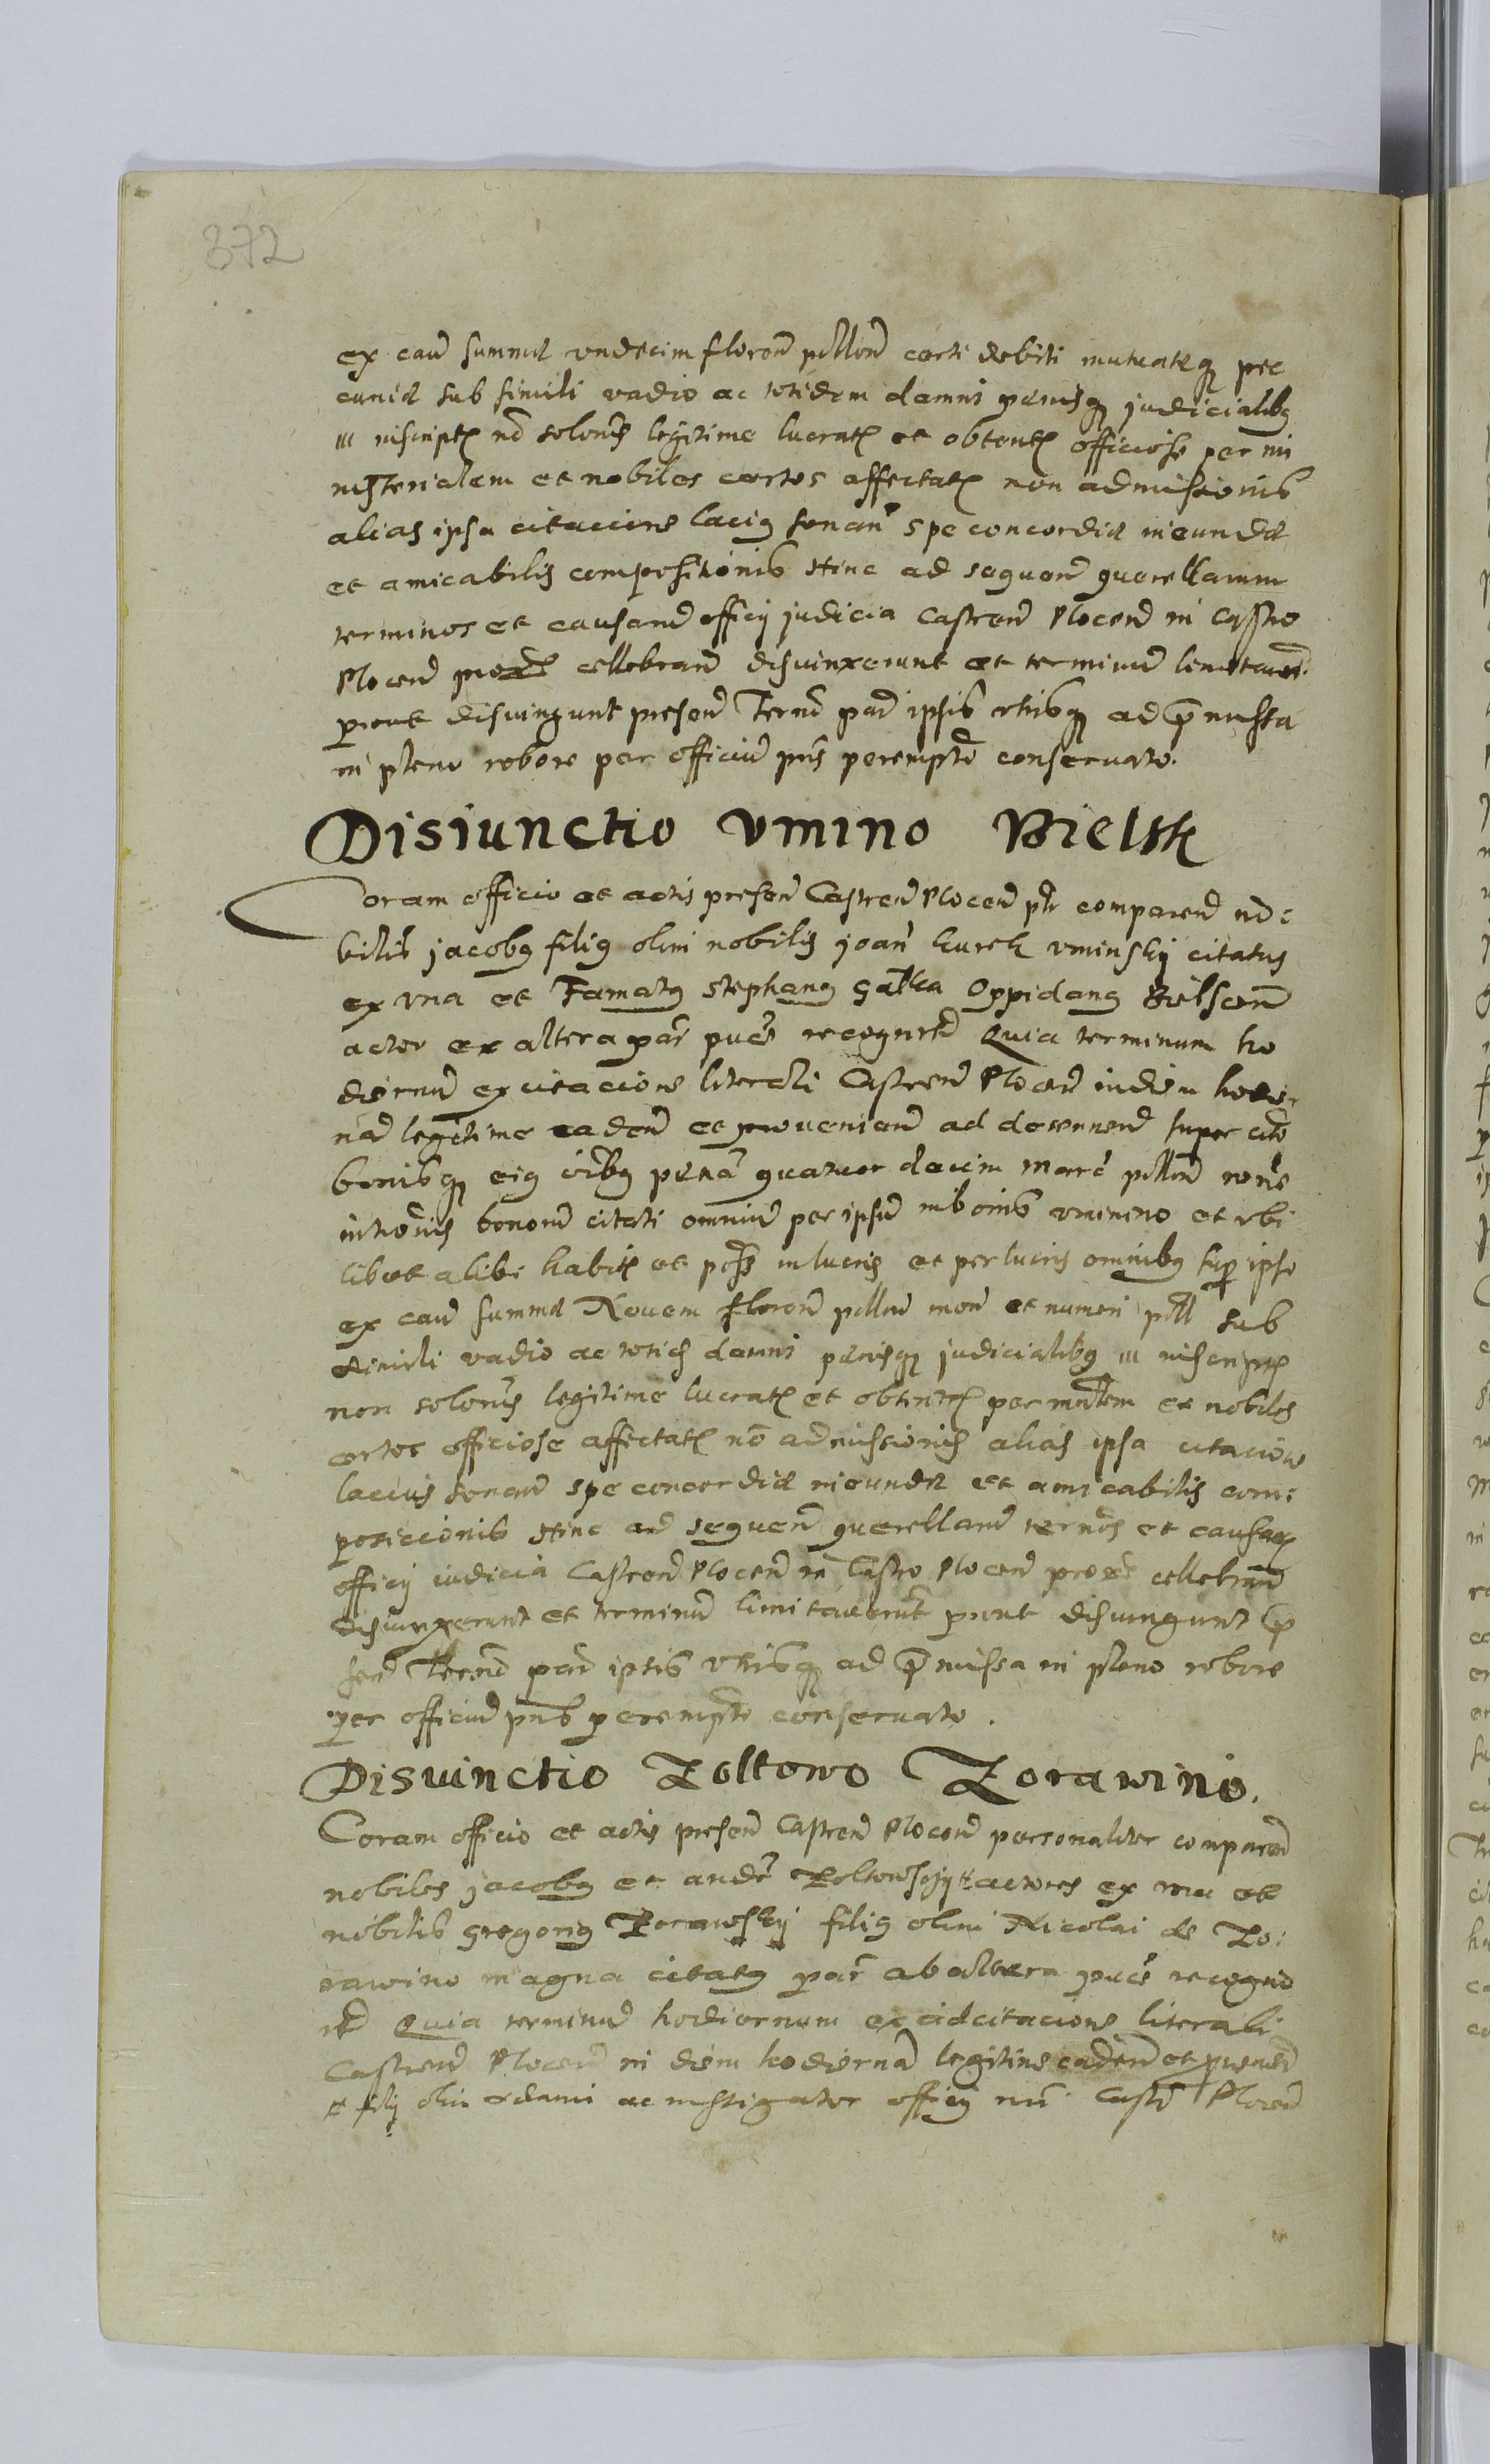 372
ex cau summa vndecim floren pollon certi debiti mutuateq pec
cunia sub simili vadio ac totidem damni penisq judicialibq
inscript no soluonis legitime lucrat et obtent officiose per mi
nisterialem et nobiles certos affectat non admissionis
alias ipsa citacione lacig sonan spe concordia ineunda
et amicabilis compositionis hinc ad sequen querellarum
terminos et causaru officij judicia Castren Plocen in Castro
Plocen prox cellebran disiunxerunt et terminu limitaver
prout disiungunt presen Termi par ipsis vtrisq ad pmissa
in pleno robore per officiu pns perempte conseruato.
Disiunctio Vmino Bielsk
Coram officio et actis presen Castren Plocen ptr comparen no:
bilis jacobg filig olim nobilis joan kurek vminskij citatus
ex vna et Famatg Stephang Galka Oppidang Bielscen
actor ex altera par pnes recognrt Quia terminum ho
diernu ex citacione literali Castren Plocen in diem hodier
na legitime caden et prouenien ad decernend super cito
bonisq eig oibg pena quatuor decim marc pollon rone
intronis bonoru citati omniu per ipsu in bonis vmino et vbi
libet alibi habit et poss in lucris et per lucris omnibg sup ipso
ex cau summa Nouem floren pollon mon et numeri poll sub
simili vadio ac toties damni penisq judicialibg inscript
non soluonis legitime lucrat et obtent per mntlem et nobiles
certos officiose affectat no admissionis alias ipsa citacione
lacius sonan spe concordia ineunda et amicabilis com:
posiccionis hinc ad sequen querellaru termos et causar
officij iudicia Castren Plocen in Castro Plocen prox cellebran
disiunxerunt et terminu limitauerunt prout disiungunt p
sen Termi par ipsis vtrisq ad pmissa in pleno robore
per officiu pns perempte conseruato.
Disiunctio Zoltowo Zorawino.
Coram officio et actis presen Castren Plocen personaliter comparen
nobiles jacobg et andr Zoltowscij actores ex vna et
nobilis gregorig Zorawskij filig olim Nicolai de Zo:
rawino magna citatg par ab altera pnes recogno
rt Quia terminu hodiernum ex adcitacione literali
Castren Plocen in diem hodierna legitime caden et prouen
filij olim adami ac instigator officij nri Castr Plocen